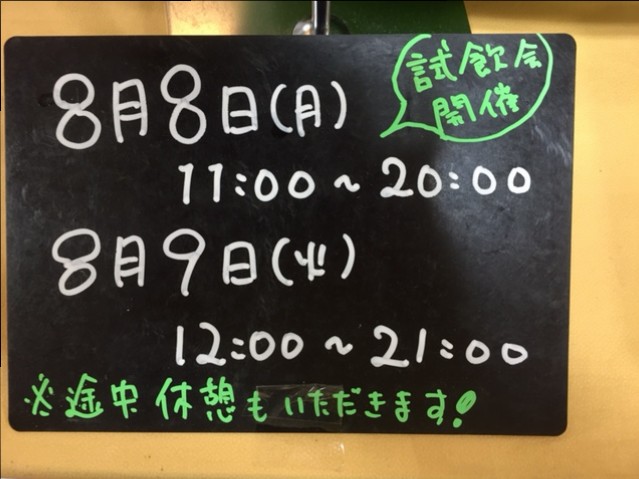 試飲会
開催
8月8日(月)
11:00~20:00
8月9日(火)
12:00~21:00
※途中休憩もいただきます!